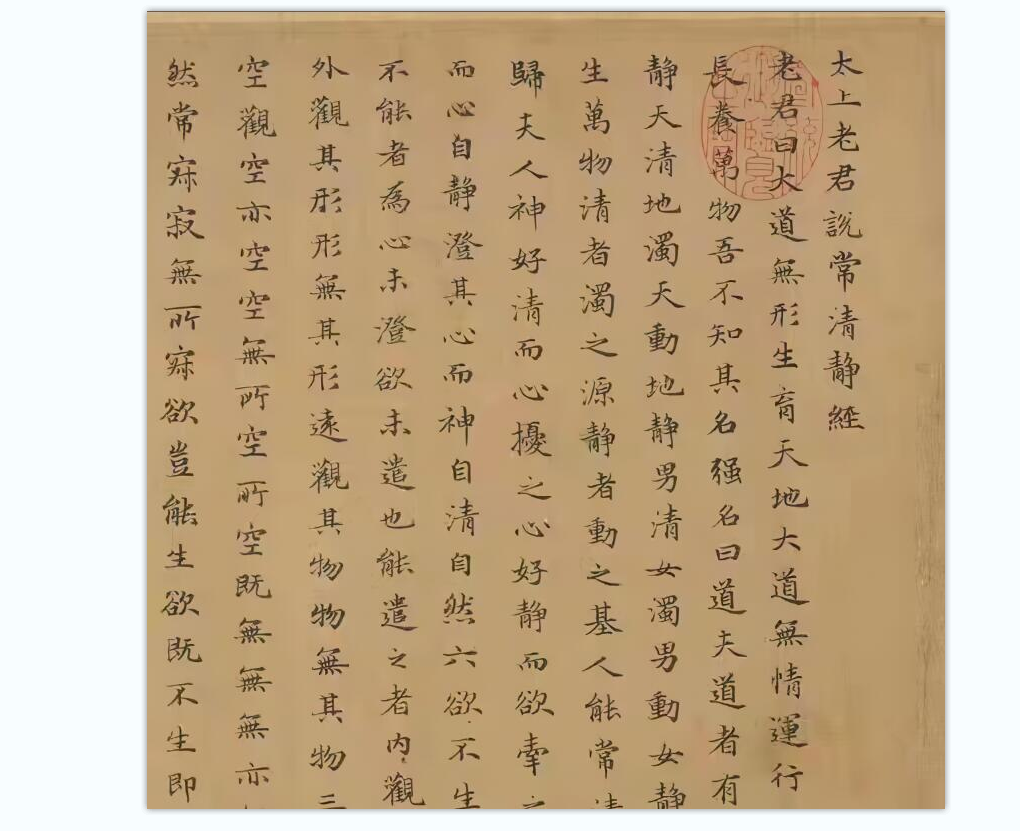 太上老君說常清静經
老君曰大道無形生育天地大道無情運行
長養萬物吾不知其名强名曰道夫道者有
静天清地濁天動地静男清女濁男動女静
生萬物清者濁之源静者動之基人能常清
歸夫人神好清而心擾之心好静而欲牽之
而心自静澄其心而神自清自然六欲不生
不能者為心未澄欲未遣也能遣之者内觀
外觀其形形無其形遠觀其物物無其物三
空觀空亦空空無所空所空既無無無亦
然常寂寂無所寂欲豈能生欲既不生即